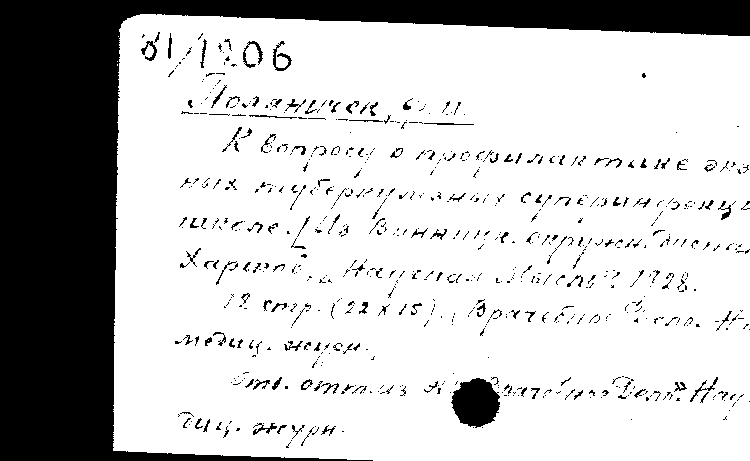 /1206
Поляничек,
К вопросу о профилактике экзо
ных туберкулезных суперинфекци
школе. [Из Винницк. окружн.
Харьков, „Научная Мысль". 1928.
12 стр. (22 x 15). Врачебное Дело.
медиц. журн.
отт. из Врачебное Дело". Нау
диц. журн.